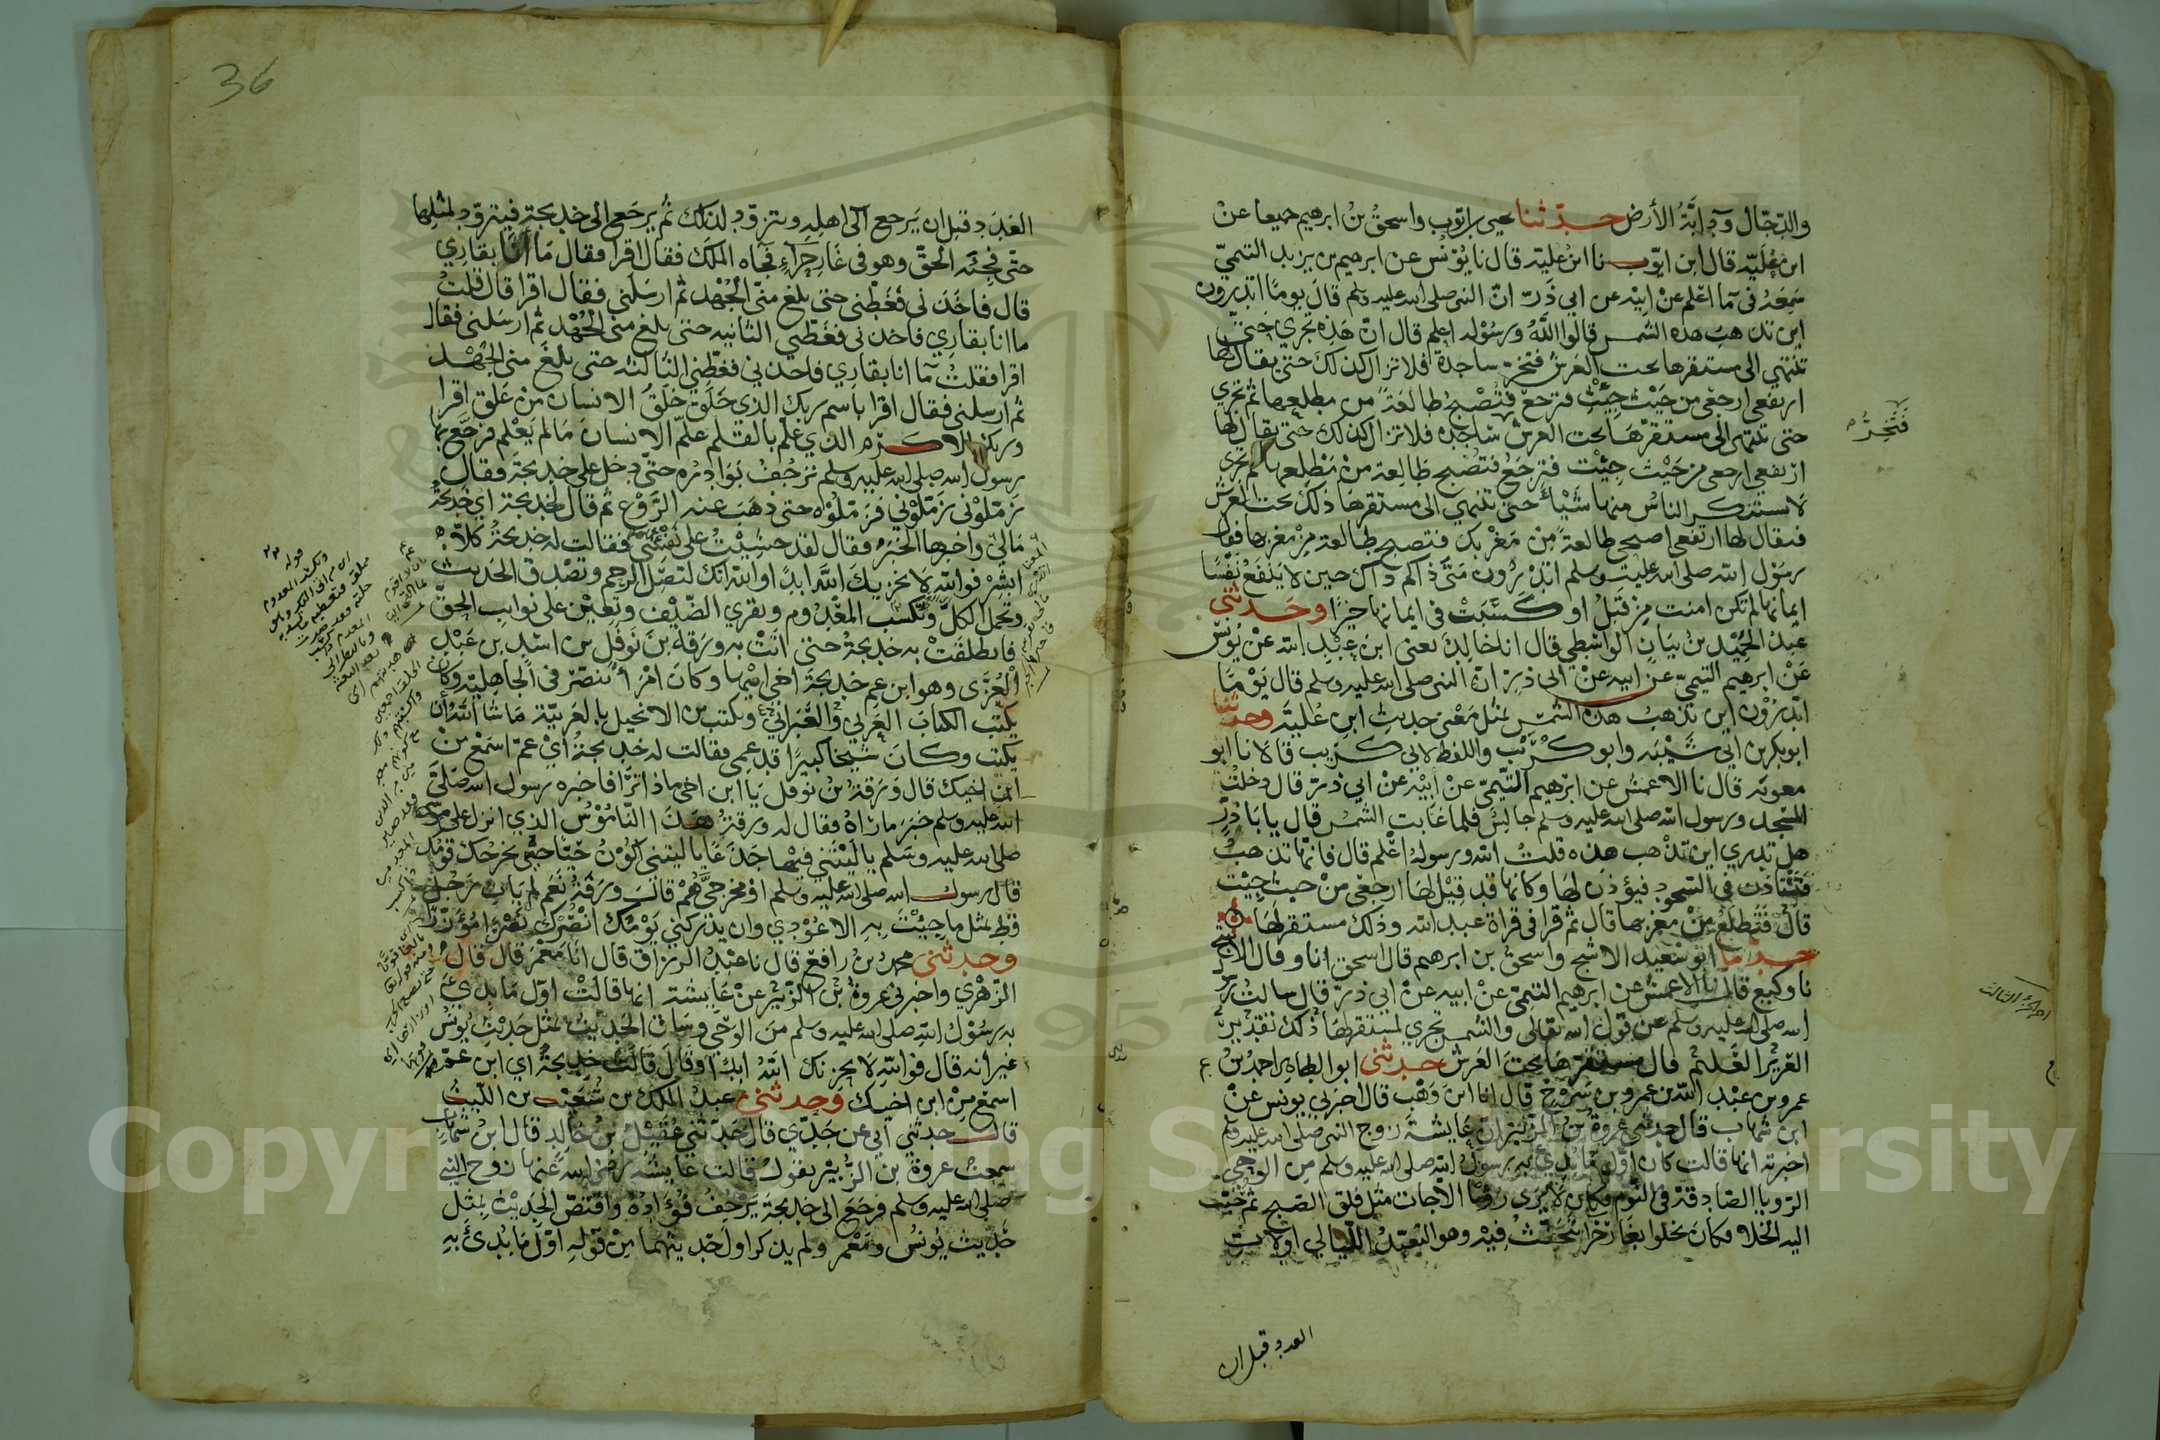 والدجال ودابة الأرض حدثنا يحيى بن ايوب واسحق بن ابرهيم جميعا عن
ابن علية قال ابن ايوب نا ابن علية قال نا يونس عن ابرهيم بن يزيد التيمي
سمعه في ما اعلم عن ابيه عن ابي ذر ان النبي صلى الله عليه وسلم قال يوما اتدرون
اين تذهب هذه الشمس قالوا الله ورسوله اعلم قال ان هذه تجري حتى
تنتهي الى مستقرها تحت العرش فتخر ساجدة فلا تزال كذلك حتى يقال لها
ارتفعي ارجعي من حيث جيت فترجع فتصبح طالعة من مطلعها ثم تجري
حتى تنتهي الى مستقرها تحت العرش ساجدة فلا تزال كذلك حتى يقال لها
ارتفعي ارجعي من حيث جيت فترجع فتصبح طالعة من مطلعها ثم تجري
لا يستنكر الناس منها شيأ حتى تنتهي الى مستقرها ذلك تحت العرش
فيقال لها ارتفعي اصبحي طالعة من مغربك فتصبح طالعة من مغربها فقال
رسول الله صلى الله عليه وسلم اتدرون متى ذاكم ذاك حين لا ينفع نفسا
ايمانها لم تكن امنت من قبل او كسبت في ايمانها خيرا وحدثني
عبد الحميد بن بيان الواسطي قال انا خالد يعني ابن عبد الله عن يونس
عن ابرهيم التيمي عن ابيه عن ابي ذر ان النبي صلى الله عليه وسلم قال يوما
اتدرون اين تذهب هذه الشمس بمثل معنى حديث ابن علية وحدثنا
ابو بكر بن ابي شيبه وابو كريب واللفظ لابي كريب قالا نا ابو
معوية قال نا الاعمش عن ابرهيم التيمي عن ابيه عن ابي ذر قال دخلت
المسجد ورسول الله صلى الله عليه وسلم جالس فلما غابت الشمس قال يا با ذر
هل تدري اين تذهب هذه قلت الله ورسوله اعلم قال فانها تذهب
فتستاذن في السجود فيؤذن لها وكانها قد قيل لها ارجعي من حيث جيت
قال فتطلع من مغربها قال ثم قرا في قراة عبد الله وذلك مستقر لها
حدثنا ابو سعيد الاشج واسحق بن ابرهيم قال اسحق انا وقال الاشج
نا وكيع قال نا الاعمش عن ابرهيم التيمي عن ابيه عن ابي ذر قال سالت رسول
الله صلى الله عليه وسلم عن قول الله تعالى والشمس تجري لمستقر لها ذلك تقدير
العزيز العليم قال مستقرها تحت العرش حدثني ابو الطاهر احمد بن
عمرو بن عبد الله بن عمرو بن سروح قال انا ابن وهب قال اخبرني يونس عن
ابن شهاب قال حدثني عروة بن الزبير ان عايشة زوج النبي صلى الله عليه وسلم
اخبرته انها قالت كان اول ما بدئ به رسول الله صلى الله عليه وسلم من الوحي
الرويا الصادقة في النوم فكان لا يرى رؤيا الا جات مثل فلق الصبح ثم حبب
اليه الخلاء فكان يخلوا بغار حرا يتحنث فيه وهو التعبد الليالي اولات
العدد قبل ان
فتخر
36
العدد قبل ان يرجع الى اهله ويتزود لذلك ثم يرجع الى خديجة فيتزود لمثلها
حتى فجئه الحق وهو في غار حراء فجاه الملك فقال اقرا فقال ما انا بقاري
قال فاخذني فغطني حتى بلغ مني الجهد ثم ارسلني فقال اقرا قال قلت
ما انا بقاري فاخذني فغطني الثانيه حتى بلغ مني الجهد ثم ارسلني فقال
اقرا فقلت ما انا بقاري فاخذني فغطني الثالثه حتى بلغ مني الجهد
ثم ارسلني فقال اقرا باسم ربك الذي خلق خلق الانسان من علق اقرا
وربك الاكرم الذي علم بالقلم علم الانسان ما لم يعلم فرجع بها
رسول الله صلى الله عليه وسلم ترجف بوادره حتى دخل على خديجة فقال
زملوني زملوني فزملوه حتى ذهب عنه الروع ثم قال لخديجة اي خديجة
مالي واخبرها الخبر فقال لقد خشيت على نفسي فقالت له خديجة كلا
ابشر فوالله لا يخزيك الله ابدا والله انك لتصل الرحم وتصدق الحديث
وتحمل الكل وتكسب المعدوم وتقري الضيف وتعين على نوايب الحق
فانطلقت به خديجة حتى اتت به ورقة بن نوفل بن اسد بن عبد
العزى وهو ابن عم خديجة اخي ابيها وكان امرأ تنصر في الجاهليه وكان
يكتب الكتاب العربي ويكتب من الانجيل بالعربية ما شا الله أن
يكتب وكان شيخا كبيرا قد عمي فقالت له خديجة أي عم اسمع من
ابن اخيك قال ورقة بن نوفل يا ابن اخي ماذا ترا فاخبره رسول الله صلى
الله عليه وسلم خبر ما راه فقال له ورقة هذا الناموس الذي انزل على موسى
صلى الله عليه وسلم يا ليتني فيها جذعا يا ليتني اكون حيا حين يخرجك قومك
قال رسول الله صلى الله عليه وسلم او مخرجي هم قال ورقة نعم لم يات رجل
قط بمثل ما جيت به الا عودي وان يدركني يومك انصرك نصرا مؤزرا
وحدثني محمد بن رافع قال نا عبد الرزاق قال انا معمر قال قال
الزهري واخبرني عروة بن الزبير عن عايشة انها قالت اول ما بدئ
به رسول الله صلى الله عليه وسلم من الوحي وساق الحديث بمثل حديث يونس
غير انه قال فوالله لا يحزنك الله ابدا وقال قالت خديجة اي ابن عم
اسمع من ابن اخيك وحدثني عبد الملك بن شعيب بن الليث
قال حدثني ابي عن جدي قال حدثني عقيل بن خالد قال ابن شهاب
سمعت عروة بن الزبير يقول قالت عايشة رضي الله عنها زوج النبي
صلى الله عليه وسلم فرجع الى خديجة يرجف فؤاده واقتص الحديث بمثل
حديث يونس ومعمر ولم يذكر اول حديثهما من قوله اول ما بدئ به